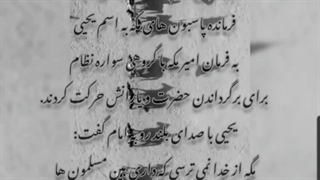 فرمانده پاسبون های مکه به اسم یحیی
به فرمان امیر مکه با گروهی سواره نظام
برای برگرداندن حضرت و یارانش حرکت کردند.
یحیی با صدای بلند رو به امام گفت:
مگه از خدا نمی ترسی که داری بین مسلمون ها